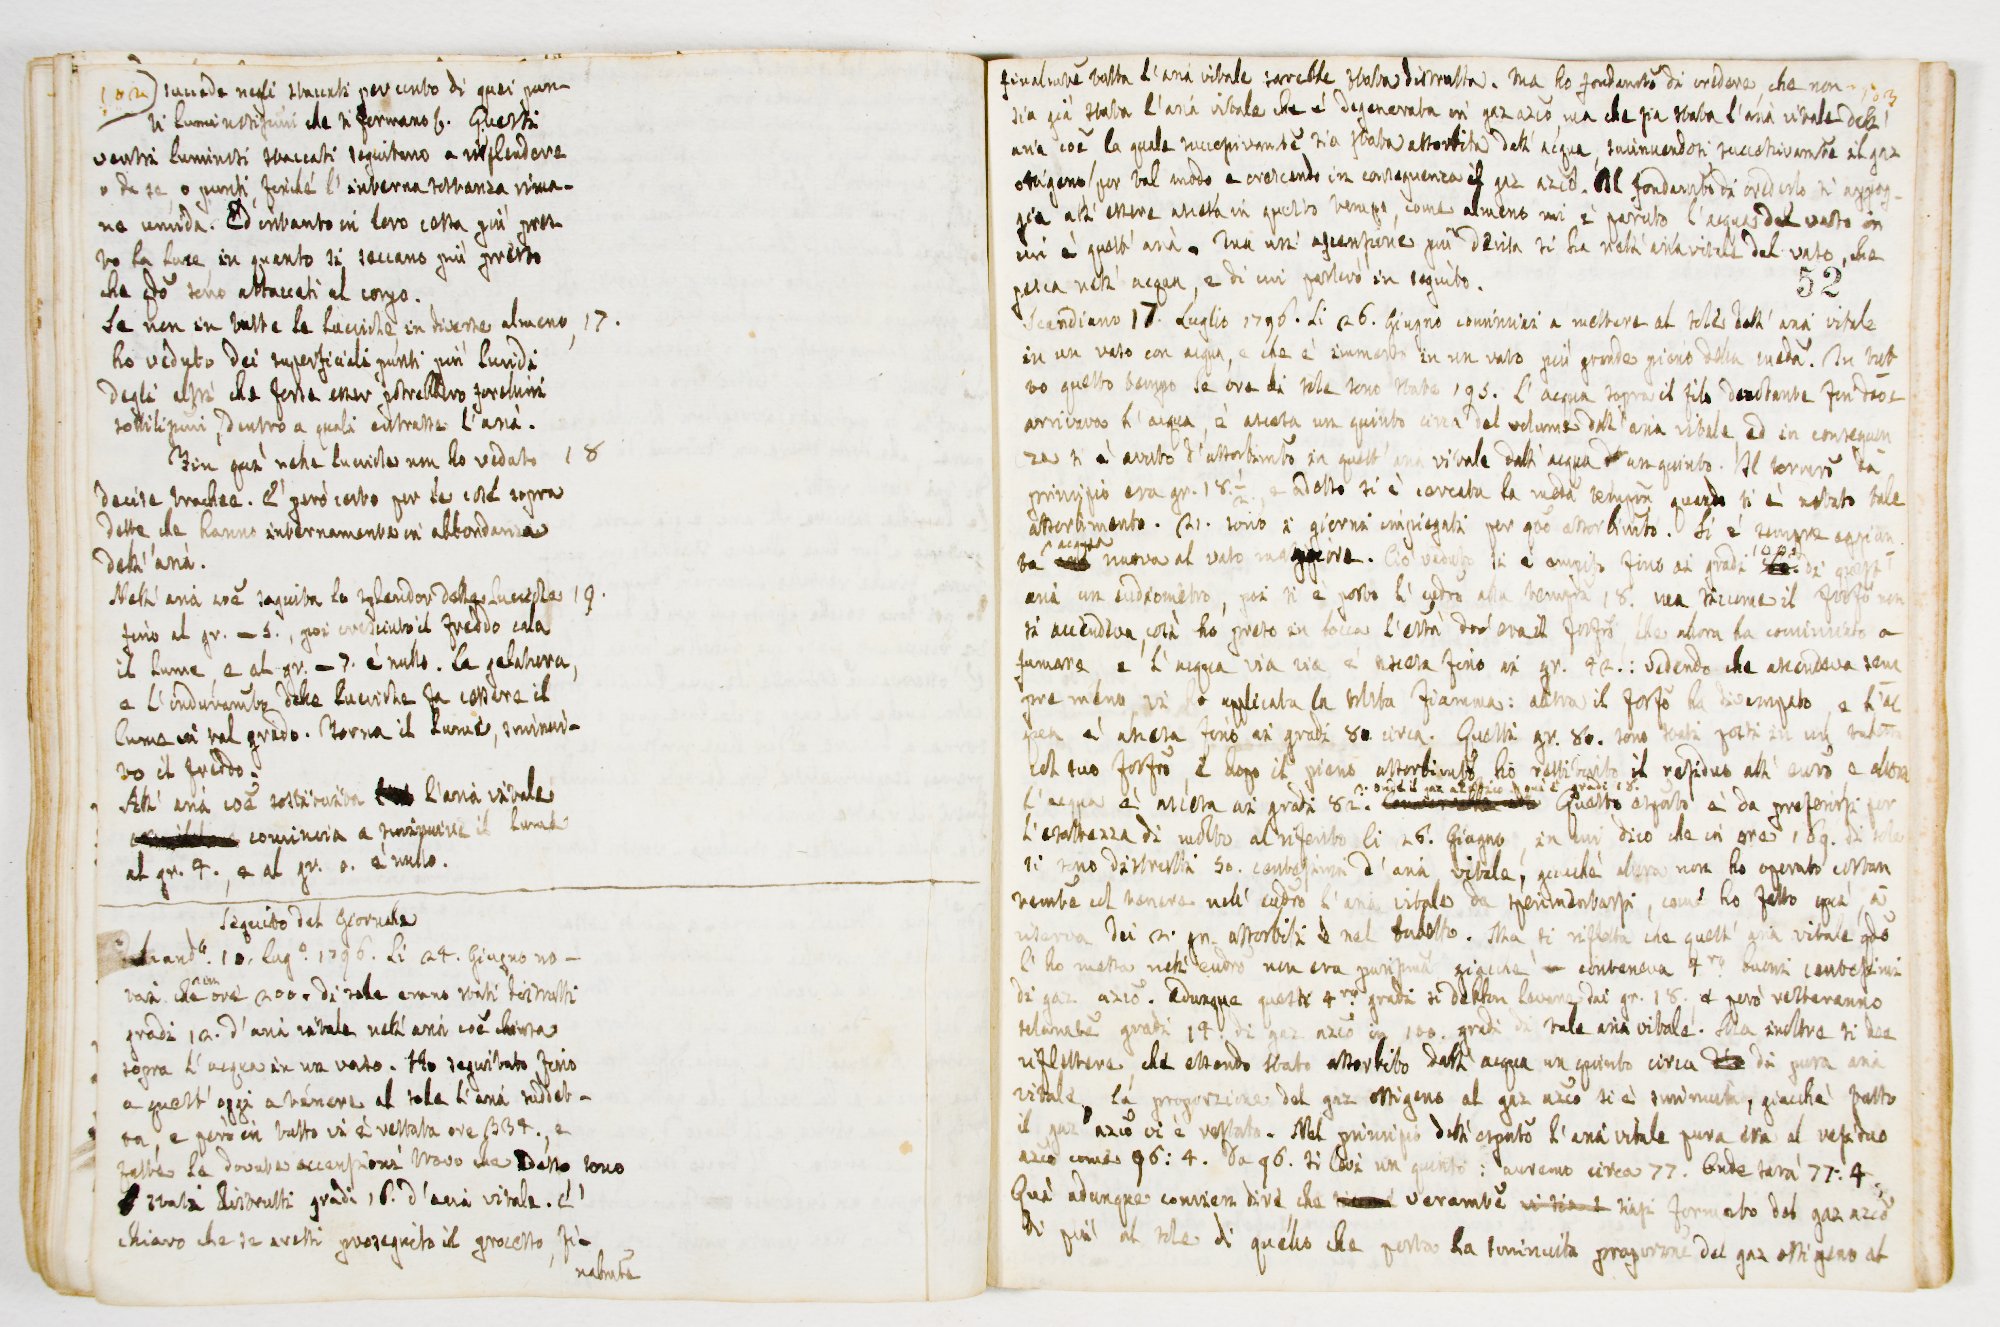 102) succede negli staccati per entro di quei pun-
ti luminosissimi che si fermano &. Questi
ventri luminosi staccati seguitano a risplendere
o da se, o punti, finché l'interna sostanza rima-
ne umida. Ed intanto in loro cessa più pres-
to la luce, in quanto si seccano più presto
che qdo sono attaccati al corpo.
Se non in tutte le lucciole, in diverse almeno, 17.
ho veduto dei superficiali punti più lucidi
degli altri che forse esser potrebbero forellini
sottilissimi, dentro a quali entrasse l'aria.
Fin quà nelle lucciole non ho veduto 18
decise trachee. È però certo per le cose sopra
dette che hanno internamente in abbondanza
dell'aria.
Nell'aria coe seguita lo splendor delle lucciole 19.
fino al gr. – 5., poi cresciuto il freddo cala
il lume, e al gr. – 7. è nullo. La gelatura,
e l'induramto delle lucciole fa cessare il
lume in tal grado. Torna il lume, sminui-
to il freddo.
All'aria coe sostituita l'aria vitale
comincia a sminuire il lume
al gr. 4., e al gr. 0. è nullo.
Seguito del Giornale
Scando. 10. Lugo. 1796. Li 24. Giugno no-
tai che in ore 200. di sole erano stati distrutti
gradi 12. d'aria vitale nell'aria coe chiusa
sopra l'acqua in un vaso. Ho seguitato fino
a quest'oggi a tenere al sole l'aria suddet-
ta, e però in tutto vi è restata ore 334., e
fatte le dovute accensioni trovo che adesso sono
stati distrutti gradi 16. d'aria vitale. È
chiaro che se avessi proseguito il processo, fi-
nalmte
103
finalmte tutta l'aria vitale sarebbe stata distrutta. Ma ho fondamto di credere che non
sia già stata l'aria vitale che è degenerata in gaz azoo, ma che sia stata l'aria vitale dell'
aria coe la quale successivamte sia stata assorbita dall'acqua, sminuendosi successivamte il gaz
ossigeno per tal modo e crescendo in conseguenza il gaz azoo. Il fondamto di crederlo si appog-
gia all'essere ascesa in questo tempo, come almeno mi è paruto l'acqua del vaso in
cui è quest'aria. Ma un'ascensione più decisa si ha nell'aria vitale del vaso, che
pesca nell'acqua, e di cui parlerò in seguito.
52
Scandiano 17. Luglio 1796. Li 26. Giugno cominciai a mettere al sole dell'aria vitale
in un vaso con acqua, e che è immerso in un vaso più grande pieno della meda. In tut-
to questo tempo le ore di sole sono state 195. L'acqua sopra il filo denotante fin dove
arrivava l'acqua, è ascesa un quinto circa del volume dell'aria vitale, ed in conseguen-
za si è avuto d'assorbimto in quest'aria vitale dall'acqua un quinto. Il termro da
principio era gr. 18. 1/2. e adesso si è cercata la meda tempra quando si è notato tale
assorbimento. 21. sono i giorni impiegati per qto assorbimto. Si è sempre aggiun-
ta acqua nuova al vaso maggiore. Ciò veduto si è empito fino ai gradi 100. di quest'
aria un eudiometro, poi si è posto l'eudro alla tempra 18. ma siccome il fosfo non
si accendeva, così ho preso in bocca l'està dov'era il fosfo che allora ha cominciato a
fumare e l'acqua via via è ascesa fino ai gr. 42.: Vedendo che ascendeva sem-
pre meno, vi ho applicata la solita fiamma: allora il fosfo ha divampato, e l'ac-
qua è ascesa fino ai gradi 80 circa. Questi gr. 80. sono stati posti in un tubetto
col suo fosfro, e dopo il pieno assorbimto ho restituito il residuo all'eudro e allora
l'acqua è ascesa ai gradi 82.: onde il gaz azotico è quà gradi 18. Questo esperto è da preferirsi per
l'esattezza di molto al riferito li 26. Giugno, in cui dico che in ore 169. di sole
si sono distrutti 50. centesimi d'aria vitale, giacché allora non ho operato costan-
temte col tenere nell'eudro l'aria vitale da sperimentarsi, come ho fatto quà, a
riserva dei 2. gr. assorbiti nel tubetto. Ma si rifletta che quest'aria vitale qdo
l'ho messa nell'eudro non era purissima giacché conteneva 4ro buoni centesimi
di gaz azoo. Adunque questi 4ro gradi si debbon levare dai gr. 18. e però resteranno
solamte gradi 14 di gaz azoo in 100. gradi di tale aria vitale. Ma inoltre si dee
riflettere, che essendo stato assorbito dall'acqua un quinto circa di pura aria
vitale, la proporzione del gaz ossigeno al gaz azoo si è sminuita, giacché tutto
il gaz azoo vi è restato. Nel principio dell'esperto l'aria vitale pura era al residuo
azoo come 96: 4. Da 96. si levi un quinto: avremo circa 77. Onde sarà 77: 4.
Quà adunque convien dire che veramte siasi formato del gaz azoo
di più al sole di quello che porta la sminuita proporzione del gaz ossigeno al